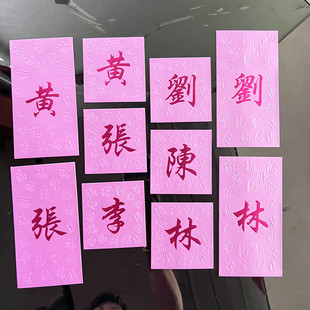 黃
黃
劉
劉
張
陳
張
李
林
林